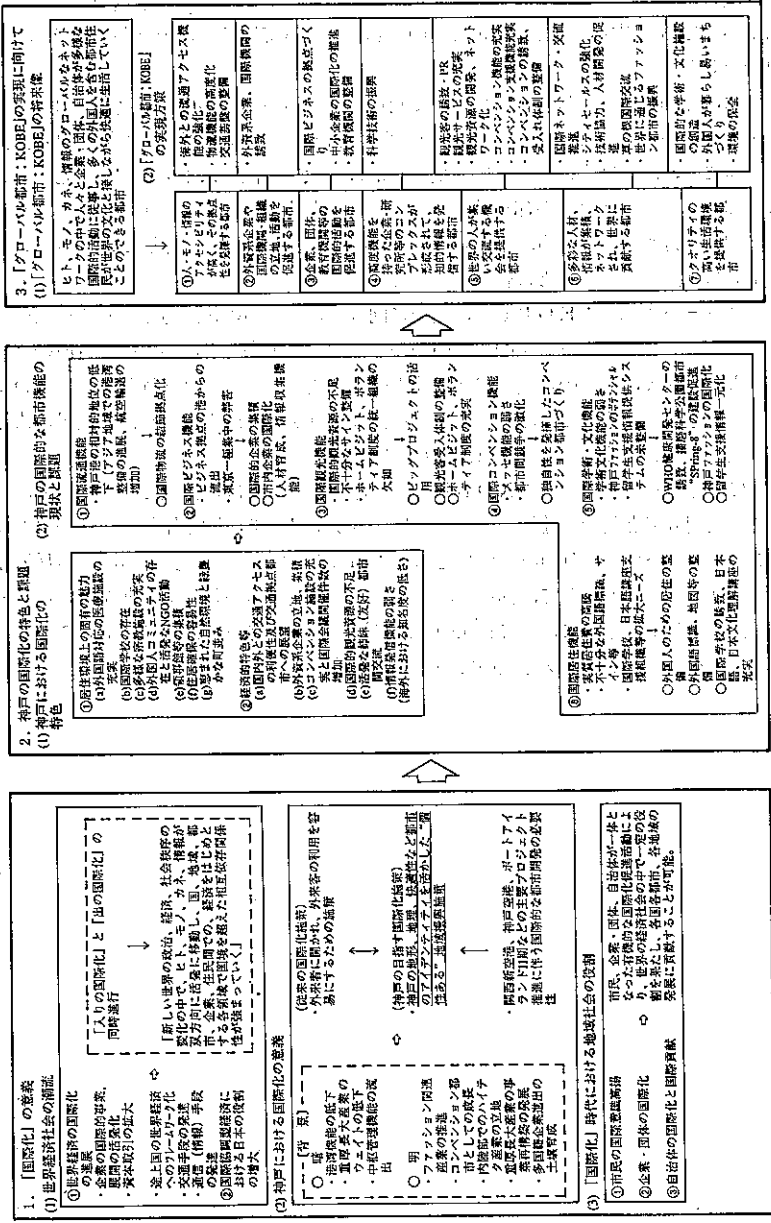 1. 「国際化」の意義
(1) 世界経済社会の潮流
①世界経済の国際化
の進展
・企業の国際的事業
展開の活発化
・資本取引の拡大
・途上国の世界経済
へのフレームワーク化
・交通手段の発達
・通信(情報)手段
の発達
②国際協調型経済に
おける日本の役割
の増大
「入りの国際化」と「出の国際化」の
同時進行
「新しい世界の政治、経済、社会秩序の
変化の中で、ヒト、モノ、カネ、情報が
双方向に活発に移動し、国、地域、都
市、企業、住民間での、経済をはじめと
する各領域で国境を超えた相互依存関係
性が強まっていく」
(2) 神戸における国際化の意義
[背 景]
○ 暗
・港湾機能の低下
・重厚長大産業の
ウェイトの低下
・中枢管理機能の流
出
○ 明
・ファッション関連
産業の推進
・コンベンション都
市としての成長
・内陸部でのハイテ
ク産業の立地
・重厚長大産業の事
業再構築の発展
・多国籍企業進出の
土壌育成
(従来の国際化施策)
・外来者に開かれ、外来客の利用を容
易にするための施策
(神戸の目指す国際化施策)
・神戸の地形、地理、快適性など都市
のアイデンティティを活かした“個
性ある”地域振興施策
・関西新空港、神戸空港、ポートアイ
ランドII期などの主要プロジェクト
推進に伴う国際的な都市開発の必要
性
(3) 「国際化」時代における地域社会の役割
①市民の国際意識高揚
②企業・団体の国際化
③自治体の国際化と国際貢献
市民、企業・団体、自治体が一体と
なった有機的な国際化促進活動によ
り、世界の経済社会の中で一定の役
割を果たし、各国各都市、各地域の
発展に貢献することが可能。
2. 神戸の国際化の特色と課題
(1) 神戸における国際化の
特色
①居住環境上の固有の魅力
(a)外国語対応の医療施設の
充実
(b)国際学校の存在
(c)多様な宗教施設の充実
(d)外国人コミュニティの存
在と活発なNGO活動
(e)領事館等の集積
(f)住居確保の容易性
(g)恵まれた自然環境と緑豊
かな町並み
②経済的特色等
(a)国内外との交通アクセス
の利便性及び交通拠点都
市への展望
(b)外資系企業の立地、集積
(c)コンベンション施設の充
実と国際会議開催件数の
増加
(d)国際的観光資源の不足
(e)活発な姉妹(友好)都市
間交流
(f)情報発信機能の弱さ
(海外における知名度の低さ)
(2) 神戸の国際的な都市機能の
現状と課題
①国際流通機能
・神戸港の相対的地位の低
下(アジア地域での港湾
整備の進展、航空輸送の
増加)
○国際物流の結節拠点化
②国際ビジネス機能
・ビジネス拠点の他からの
流出
・東京一極集中の弊害
○国際的企業の集積
○市内企業の国際化
(人材育成、情報収集機
能)
③国際観光機能
・国際的観光資源の不足
・不十分なサイン整備
・ホームビジット、ボラン
ティア制度の統一組織の
欠如
○ビッグプロジェクトの活
用
○観光客受入体制の整備
○ホームビジット、ボラン
ティア制度の充実
④国際コンベンション機能
・メッセ機能の弱さ
・都市間競争の激化
○独自性を発揮したコンベ
ンション都市づくり
⑤国際学術・文化機能
・学術文化機能の弱さ
・神戸ファッションのポテンシャル
・留学生支援情報提供シス
テムの未整備
○WHO健康開発センターの
誘致、播磨科学公園都市
“SPring-8”の建設促進
○神戸ファッションの国際化
○留学生支援情報一元化
⑥国際居住機能
・実質居住費の高騰
・不十分な外国語標識、サ
イン等
・国際学校、日本語講座支
援組織等の拡大ニーズ
○外国人のための居住の整
備
○外国語標識、地図等の整
備
○国際学校の誘致、日本
語、日本文化理解講座の
充実
3. 「グローバル都市:KOBE」の実現に向けて
(1) 「グローバル都市:KOBE」の将来像
ヒト、モノ、カネ、情報のグローバルなネット
ワークの中で人々と企業、団体、自治体が多様な
国際的活動に従事し、多くの外国人を含む都市住
民が世界の文化と接しながら快適に生活していく
ことのできる都市
①人・モノ・情報の
アクセシビリティ
が高く、その拠点
性を発揮する都市
②外資系企業や
国際機関・組織
の立地、活動を
促進する都市
③企業、団体、
教育機関等の
国際的活動を
促進する都市
④高度機能を
持った企業、研
究所等のコン
プレックスが
形成されて、
知的情報を発
信する都市
⑤世界の人が集
い交流する機
会を提供する
都市
⑥多彩な人材、
情報が集積、
ネットワーク
され、世界に
貢献する都市
⑦クオリティの
高い生活環境
を提供する都
市
(2) 「グローバル都市:KOBE」
の実現方策
・海外との流通アクセス機
能の強化
・物流機能の高度化
・交通基盤の整備
・外資系企業、国際機関の
誘致
・国際ビジネスの拠点づく
り
・中小企業の国際化の推進
・教育機関の整備
・科学技術の振興
・観光客の誘致・PR
・観光サービスの充実
・観光資源の開発、ネット
ワーク化
・コンベンション機能の充実
・コンベンション支援機能充実
・コンベンションの誘致、
受入れ体制の整備
・国際ネットワーク・交流
推進
・シティセールスの強化
・技術協力、人材開発の促
進
・草の根国際交流
・世界に通じるファッショ
ン都市の振興
・国際的な学術・文化施設
の創造
・外国人が暮らし易いまち
づくり
・環境の保全